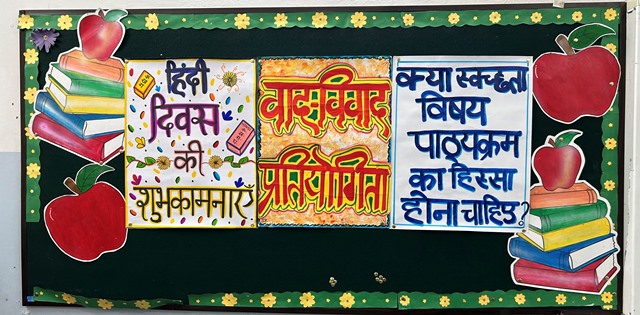 हिंदी
दिवस
की
शुभकामनाएँ
वाद-विवाद
प्रतियोगिता
क्या स्वच्छता
विषय
पाठ्यक्रम
का हिस्सा
होना चाहिए?